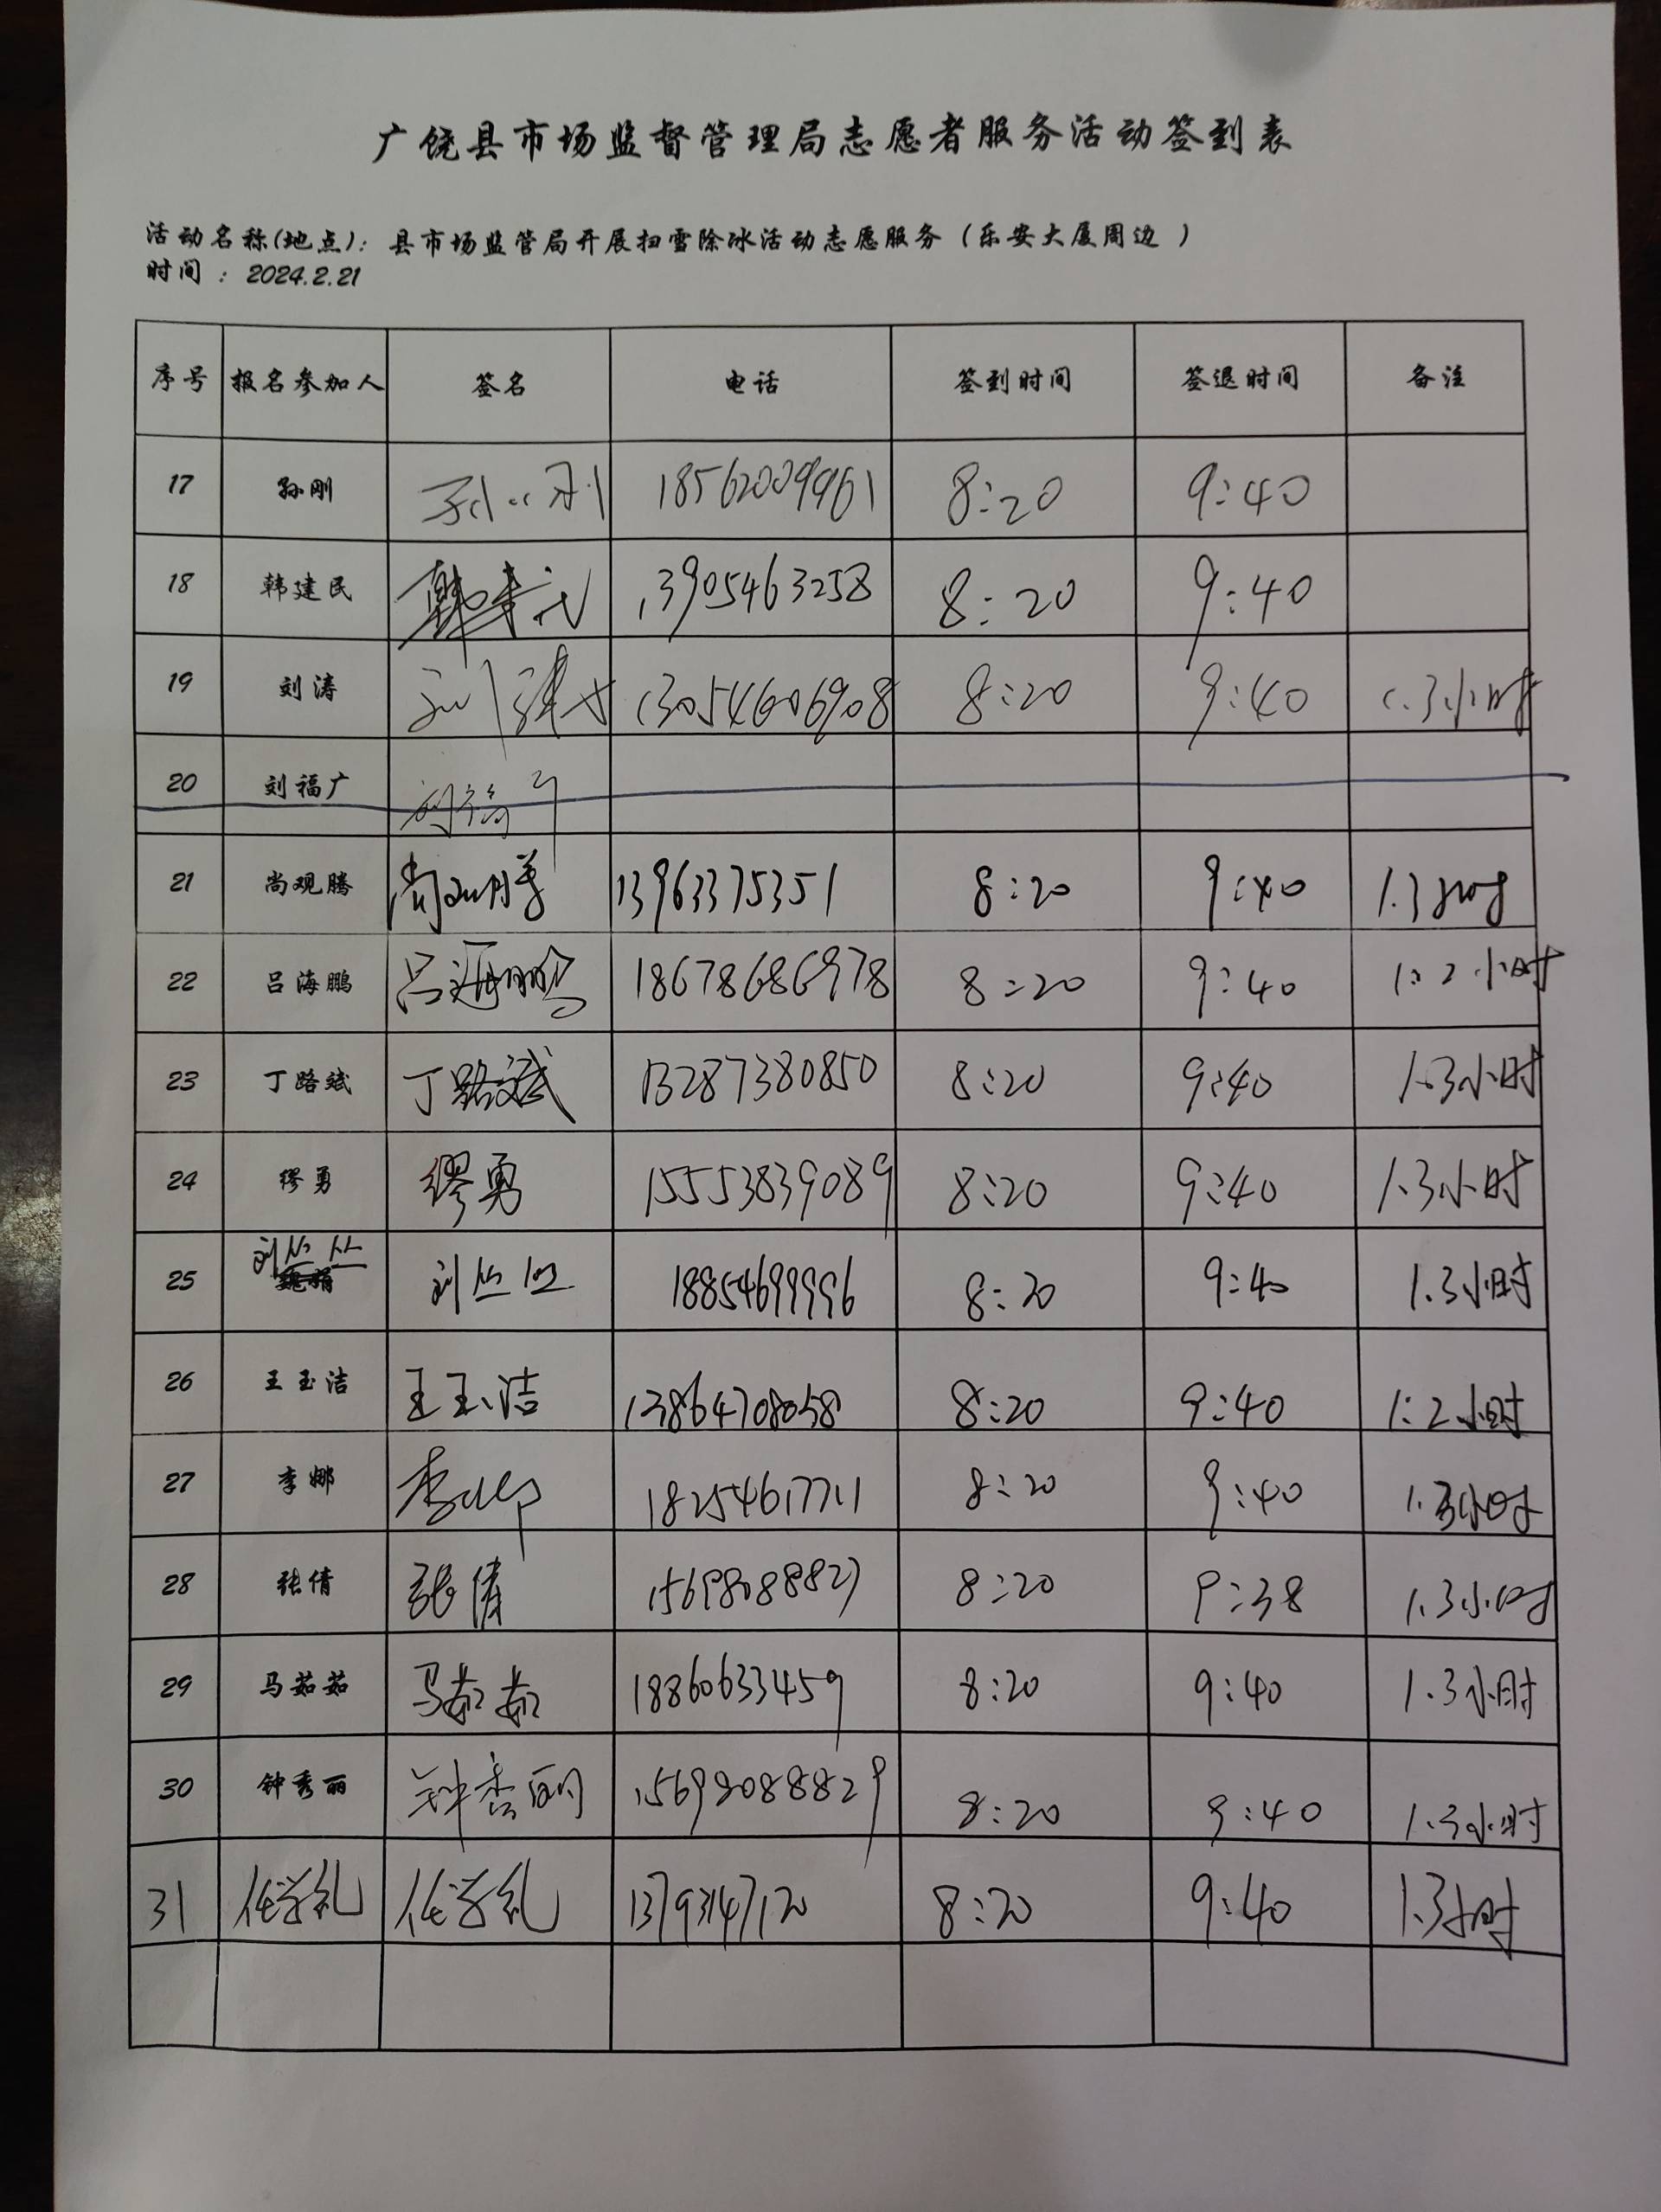 广饶县市场监督管理局志愿者服务活动签到表
活动名称(地点)：县市场监管局开展扫雪除冰活动志愿服务（乐安大厦周边 ）
时间 ：2024.2.21
序号 报名参加人 签名 电话 签到时间 签退时间 备注
17 孙刚 孙刚 18562009961 8:20 9:40
18 韩建民 13905463258 8:20 9:40
19 刘涛 刘涛 13054606908 8:20 9:40 1.3小时
20 刘福广 刘福广
21 尚观腾 尚观腾 13963375351 8:20 9:40 1.3小时
22 吕海鹏 吕海鹏 18678686978 8:20 9:40 1:2小时
23 丁路斌 丁路斌 13287380850 8:20 9:40 1.3小时
24 缪勇 缪勇 15553839089 8:20 9:40 1.3小时
25 刘丛丛 刘丛丛 18854699996 8:20 9:40 1.3小时
26 王玉洁 王玉洁 13864708058 8:20 9:40 1:2小时
27 李娜 李娜 18254617711 8:20 9:40 1.3小时
28 张倩 张倩 15698088827 8:20 9:38 1.3小时
29 马茹茹 马茹茹 18860633459 8:20 9:40 1.3小时
30 钟秀丽 钟秀丽 15698088829 8:20 9:40 1.3小时
31 任学礼 任学礼 13793147120 8:20 9:40 1.3小时